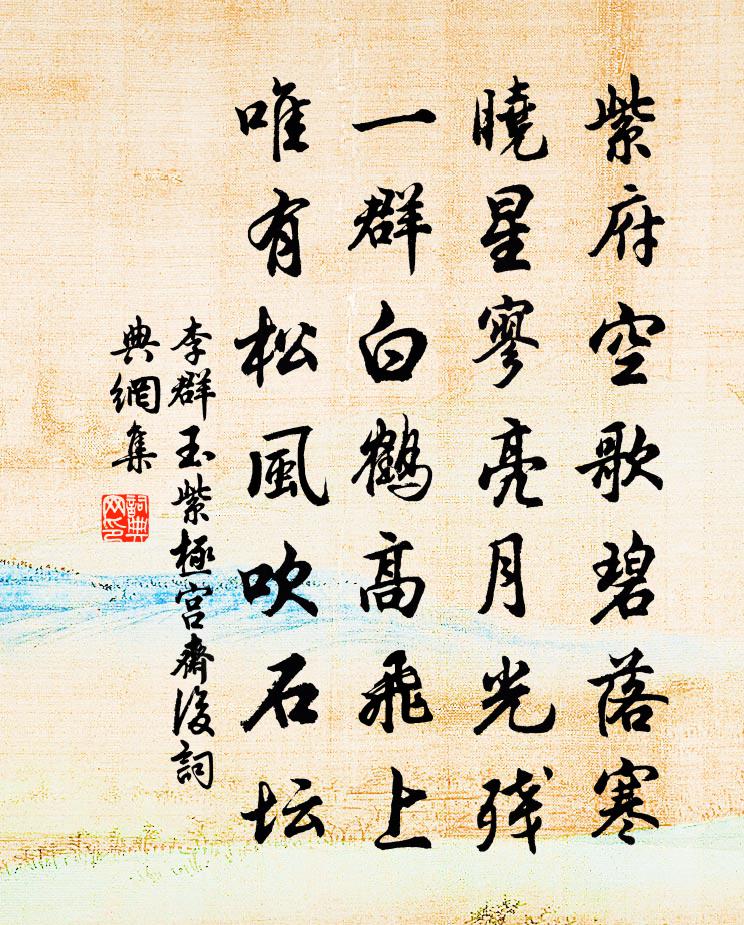 紫府空歌碧落寒
曉星寥亮月光残
一群白鶴高飛上
唯有松風吹石坛
李群玉紫極宮齋後詞
典網集
詞典
网印